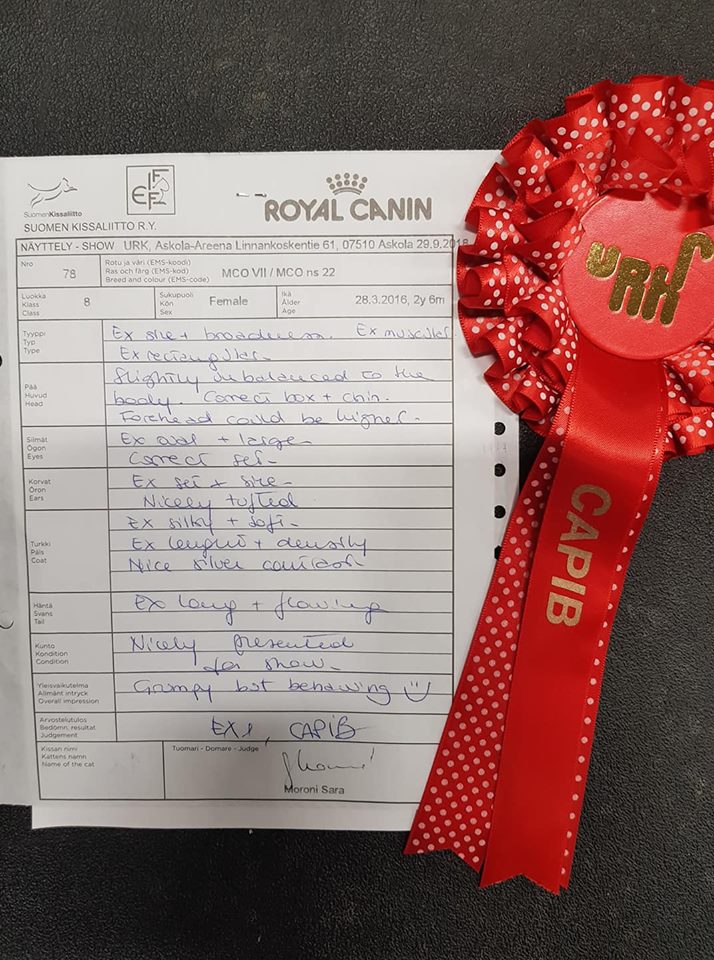 SuomenKissaliitto
SUOMEN KISSALIITTO R.Y.
FIFE
ROYAL CANIN
NÄYTTELY - SHOW URK, Askola-Areena Linnankoskentie 61, 07510 Askola 29.9.2018
Nro 78
Rotu ja väri (EMS-koodi)
Ras och färg (EMS-kod)
Breed and colour (EMS-code)
MCO VII / MCO ns 22
Luokka
Klass
Class
8
Sukupuoli
Kön
Sex
Female
Ikä
Ålder
Age
28.3.2016, 2y 6m
Tyyppi
Typ
Type
Ex size + broadness. Ex muscular.
Ex rectangular.
Pää
Huvud
Head
Slightly unbalanced to the
body. Correct box + chin.
Forehead could be higher.
Silmät
Ögon
Eyes
Ex oval + large.
Correct set.
Korvat
Öron
Ears
Ex set + size.
Nicely tufted
Turkki
Päls
Coat
Ex silky + soft.
Ex lenght + density
Nice silver
Häntä
Svans
Tail
Ex long + flowing
Kunto
Kondition
Condition
Nicely presented
for show.
Yleisvaikutelma
Allmänt intryck
Overall impression
Grumpy but behaving
Arvostelutulos
Bedömn. resultat
Judgement
EX1, CAPIB
Kissan nimi
Kattens namn
Name of the cat
Tuomari - Domare - Judge
Moroni Sara
URK
CAPIB